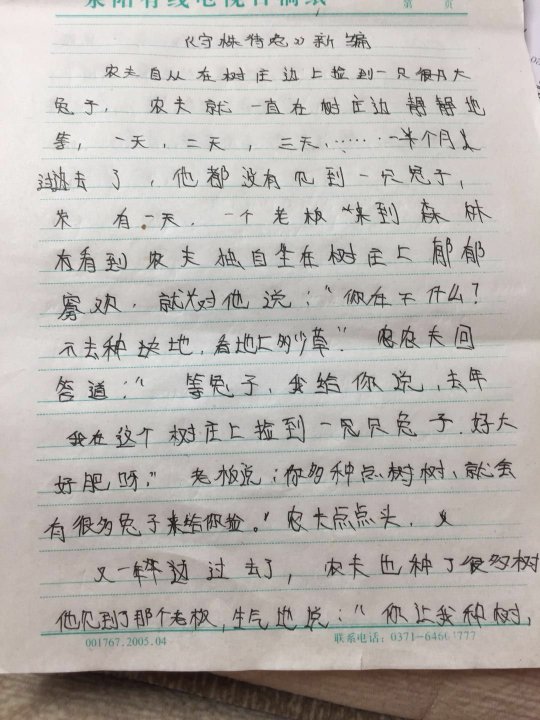 荥阳有线电视台稿纸
第 页
《守株待兔》新编
农夫自从在树庄边上捡到一只很月大
兔子，农夫就一直在树庄边静静地
等，一天，二天，三天……一半个月
过去了，他都没有见到一只兔子，
有一天，一个老板来到森林
有看到农夫独自坐在树庄上郁郁
寡欢，就对他说：“你在干什么？
不去种块地，看地上多少草”。农夫回
答道：“等兔子，我给你说，去年
我在这个树庄上捡到一只兔子．好大
好肥呀，”老板说：你多种点树树，就会
有很多兔子来给你捡。”农夫点点头，又
又一年过去了，农夫也种了很多树
他见到了那个老板，生气地说：“你让我种树，
001767.2005.04
联系电话：0371-64661777